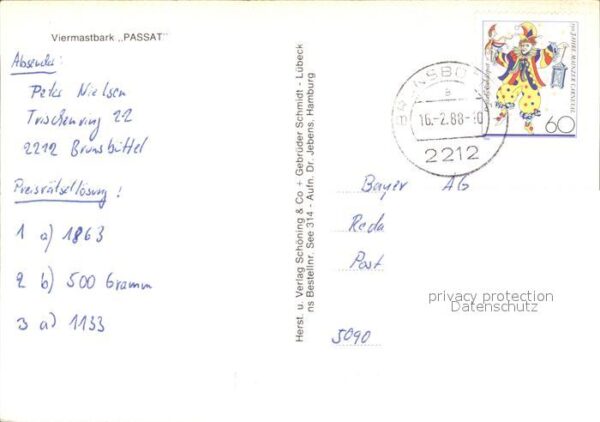 Viermastbark „PASSAT"
Absender:
Peter Nielsen
Trischenring 22
2212 Brunsbüttel
Preisrätsellösung!
1 a) 1863
2 b) 500 Gramm
3 a) 1133
Herst. u. Verlag Schöning & Co + Gebrüder Schmidt - Lübeck
ns Bestellnr. See 314 - Aufn. Dr. Jebens, Hamburg
16.-2.88-
2212
60
Bayer AG
Reda
Post
5090
privacy protection
Datenschutz